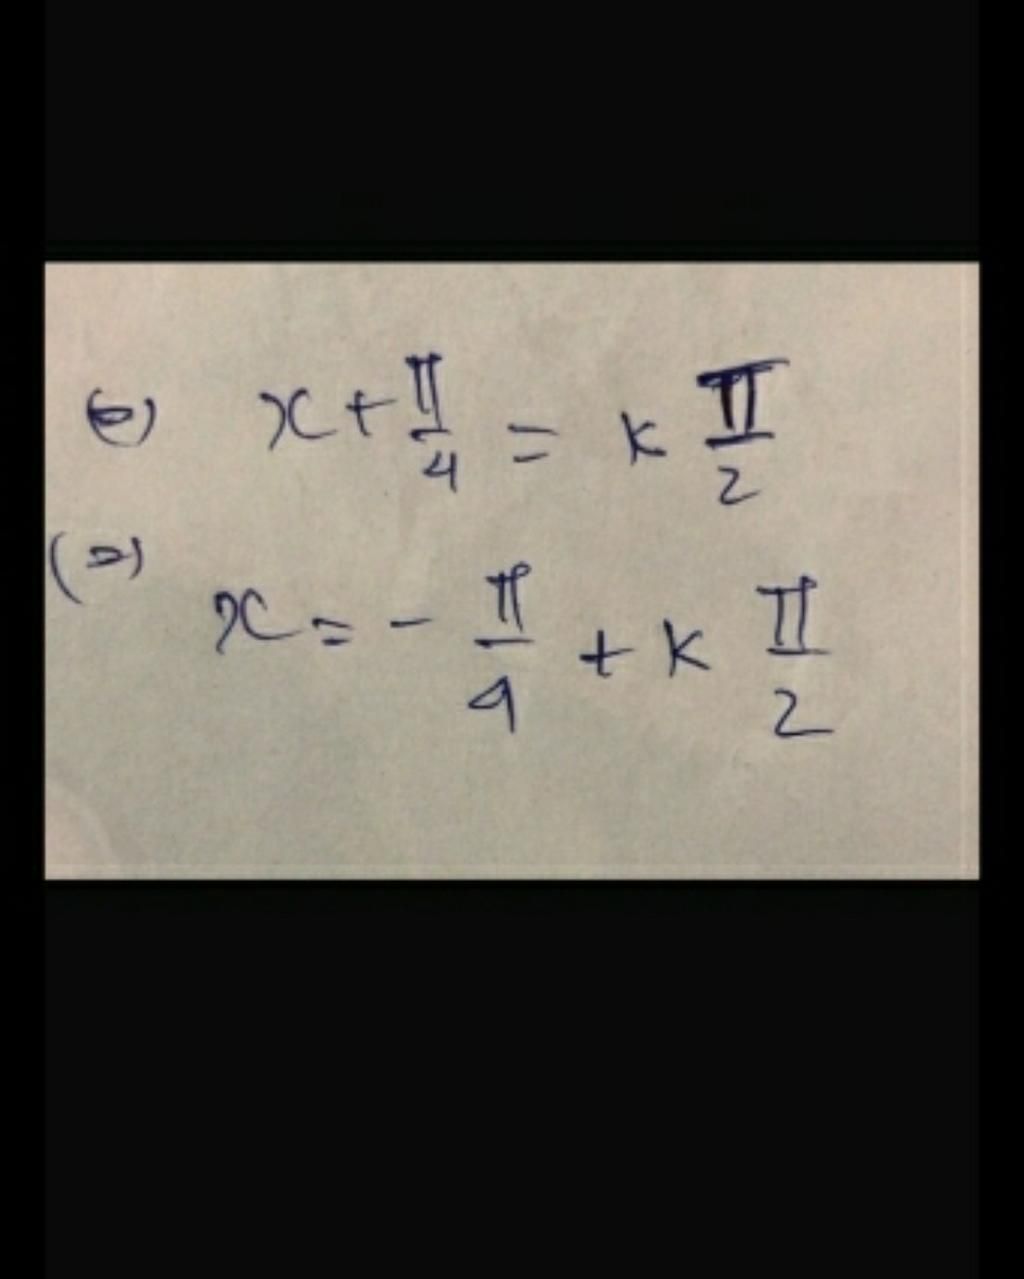 (=) x + π/4 = k π/2
(=) x = - π/4 + k π/2